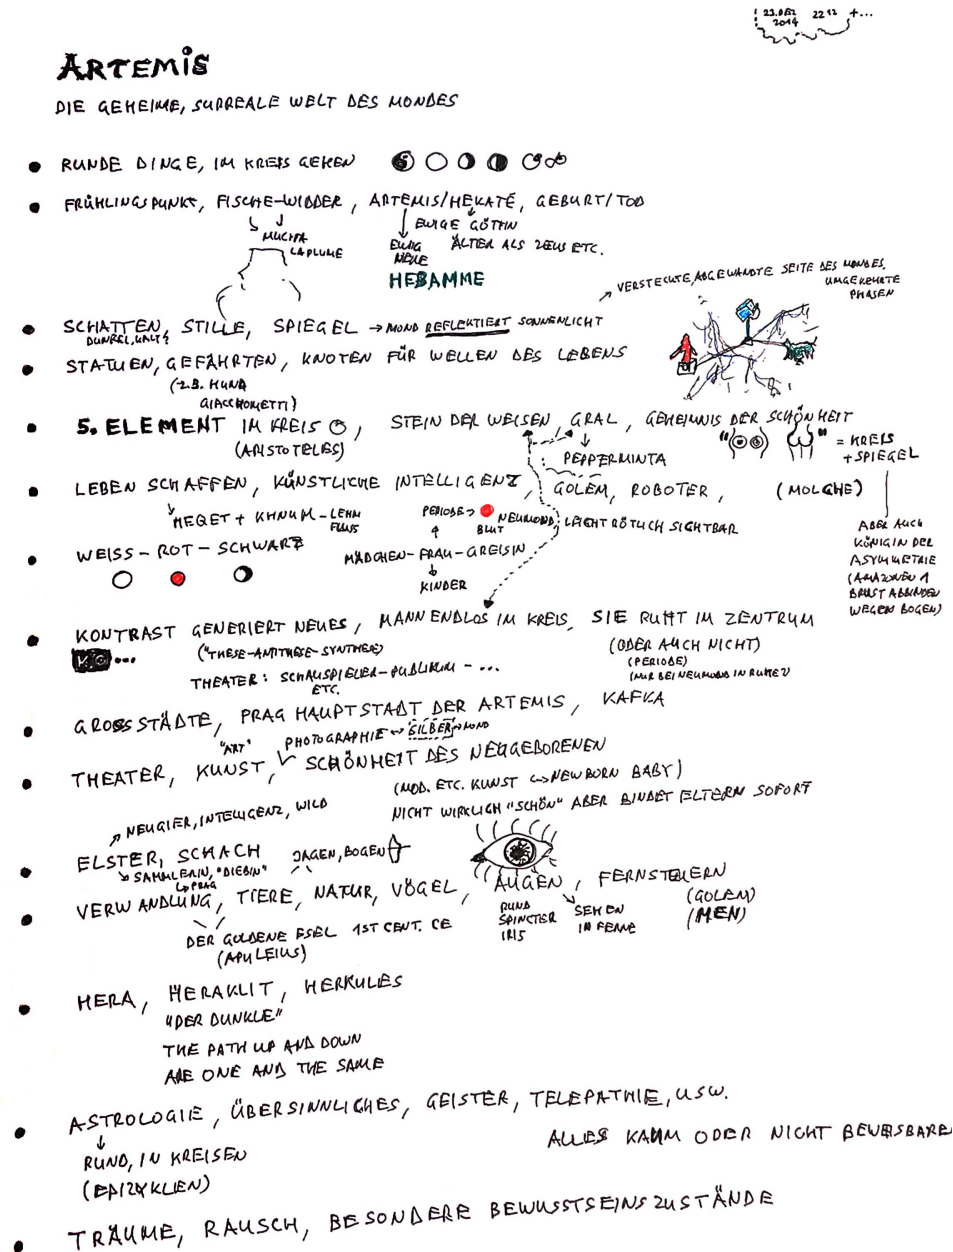 23. DEZ 2014 22 12 +...
ARTEMIS
DIE GEHEIME, SURREALE WELT DES MONDES
RUNDE DINGE, IM KREIS GEHEN
FRÜHLINGSPUNKT, FISCHE-WIDDER, ARTEMIS/HEKATE, GEBURT/TOD
MUCHA
LAPLUME
EWIGE GÖTTIN
ÄLTER ALS ZEUS ETC.
EWIG
NEUE
HEBAMME
VERSTECKTE, ABGEWANDTE SEITE DES MONDES,
UMGEKEHRTE
PHASEN
SCHATTEN, STILLE, SPIEGEL → MOND REFLEKTIERT SONNENLICHT
DUNKEL, KALT?
STATUEN, GEFÄHRTEN, KNOTEN FÜR WELLEN DES LEBENS
(Z.B. HUND
GIACCHOMETTI)
5. ELEMENT IM KREIS, STEIN DER WEISEN, GRAL, GEHEIMNIS DER SCHÖNHEIT
(ARISTOTELES)
" " = KREIS
+ SPIEGEL
PEPPERMINTA
LEBEN SCHAFFEN, KÜNSTLICHE INTELLIGENZ, GOLEM, ROBOTER, (MOLCHE)
HEQET + KHNUM - LEHM
FLUSS
PERIODE →
BLUT
NEUMOND: LEICHT RÖTLICH SICHTBAR
WEISS - ROT - SCHWARZ
MÄDCHEN - FRAU - GREISIN
KINDER
ABER AUCH
KÖNIGIN DER
ASYMMETRIE
(AMAZONEN 1
BRUST ABBINDEN
WEGEN BOGEN)
KONTRAST GENERIERT NEUES, MANN ENDLOS IM KREIS, SIE RUHT IM ZENTRUM
("THESE-ANTITHESE-SYNTHESE)
(ODER AUCH NICHT)
(PERIODE)
(NUR BEI NEUMOND IN RUHE?)
THEATER: SCHAUSPIELER - PUBLIKUM - ...
ETC.
GROSSSTÄDTE, PRAG HAUPTSTADT DER ARTEMIS, KAFKA
"ART"
PHOTOGRAPHIE ↔ SILBER → MOND
THEATER, KUNST, SCHÖNHEIT DES NEUGEBORENEN
(MOD. ETC. KUNST ↔ NEWBORN BABY)
NICHT WIRKLICH "SCHÖN" ABER BINDET ELTERN SOFORT
NEUGIER, INTELLIGENZ, WILD
ELSTER, SCHACH
SAMMLERIN, "DIEBIN"
PRAG
JAGEN, BOGEN
VERWANDLUNG, TIERE, NATUR, VÖGEL, AUGEN, FERNSTEUERN
(GOLEM)
(MEN)
RUND
SPINCTER
IRIS
SEHEN
IN FERNE
DER GOLDENE ESEL 1ST CENT. CE
(APULEIUS)
HERA, HERAKLIT, HERKULES
"DER DUNKLE"
THE PATH UP AND DOWN
ARE ONE AND THE SAME
ASTROLOGIE, ÜBERSINNLICHES, GEISTER, TELEPATHIE, USW.
RUND, IN KREISEN
(EPIZYKLEN)
ALLES KAUM ODER NICHT BEWEISBARE
TRÄUME, RAUSCH, BESONDERE BEWUSSTSEINSZUSTÄNDE